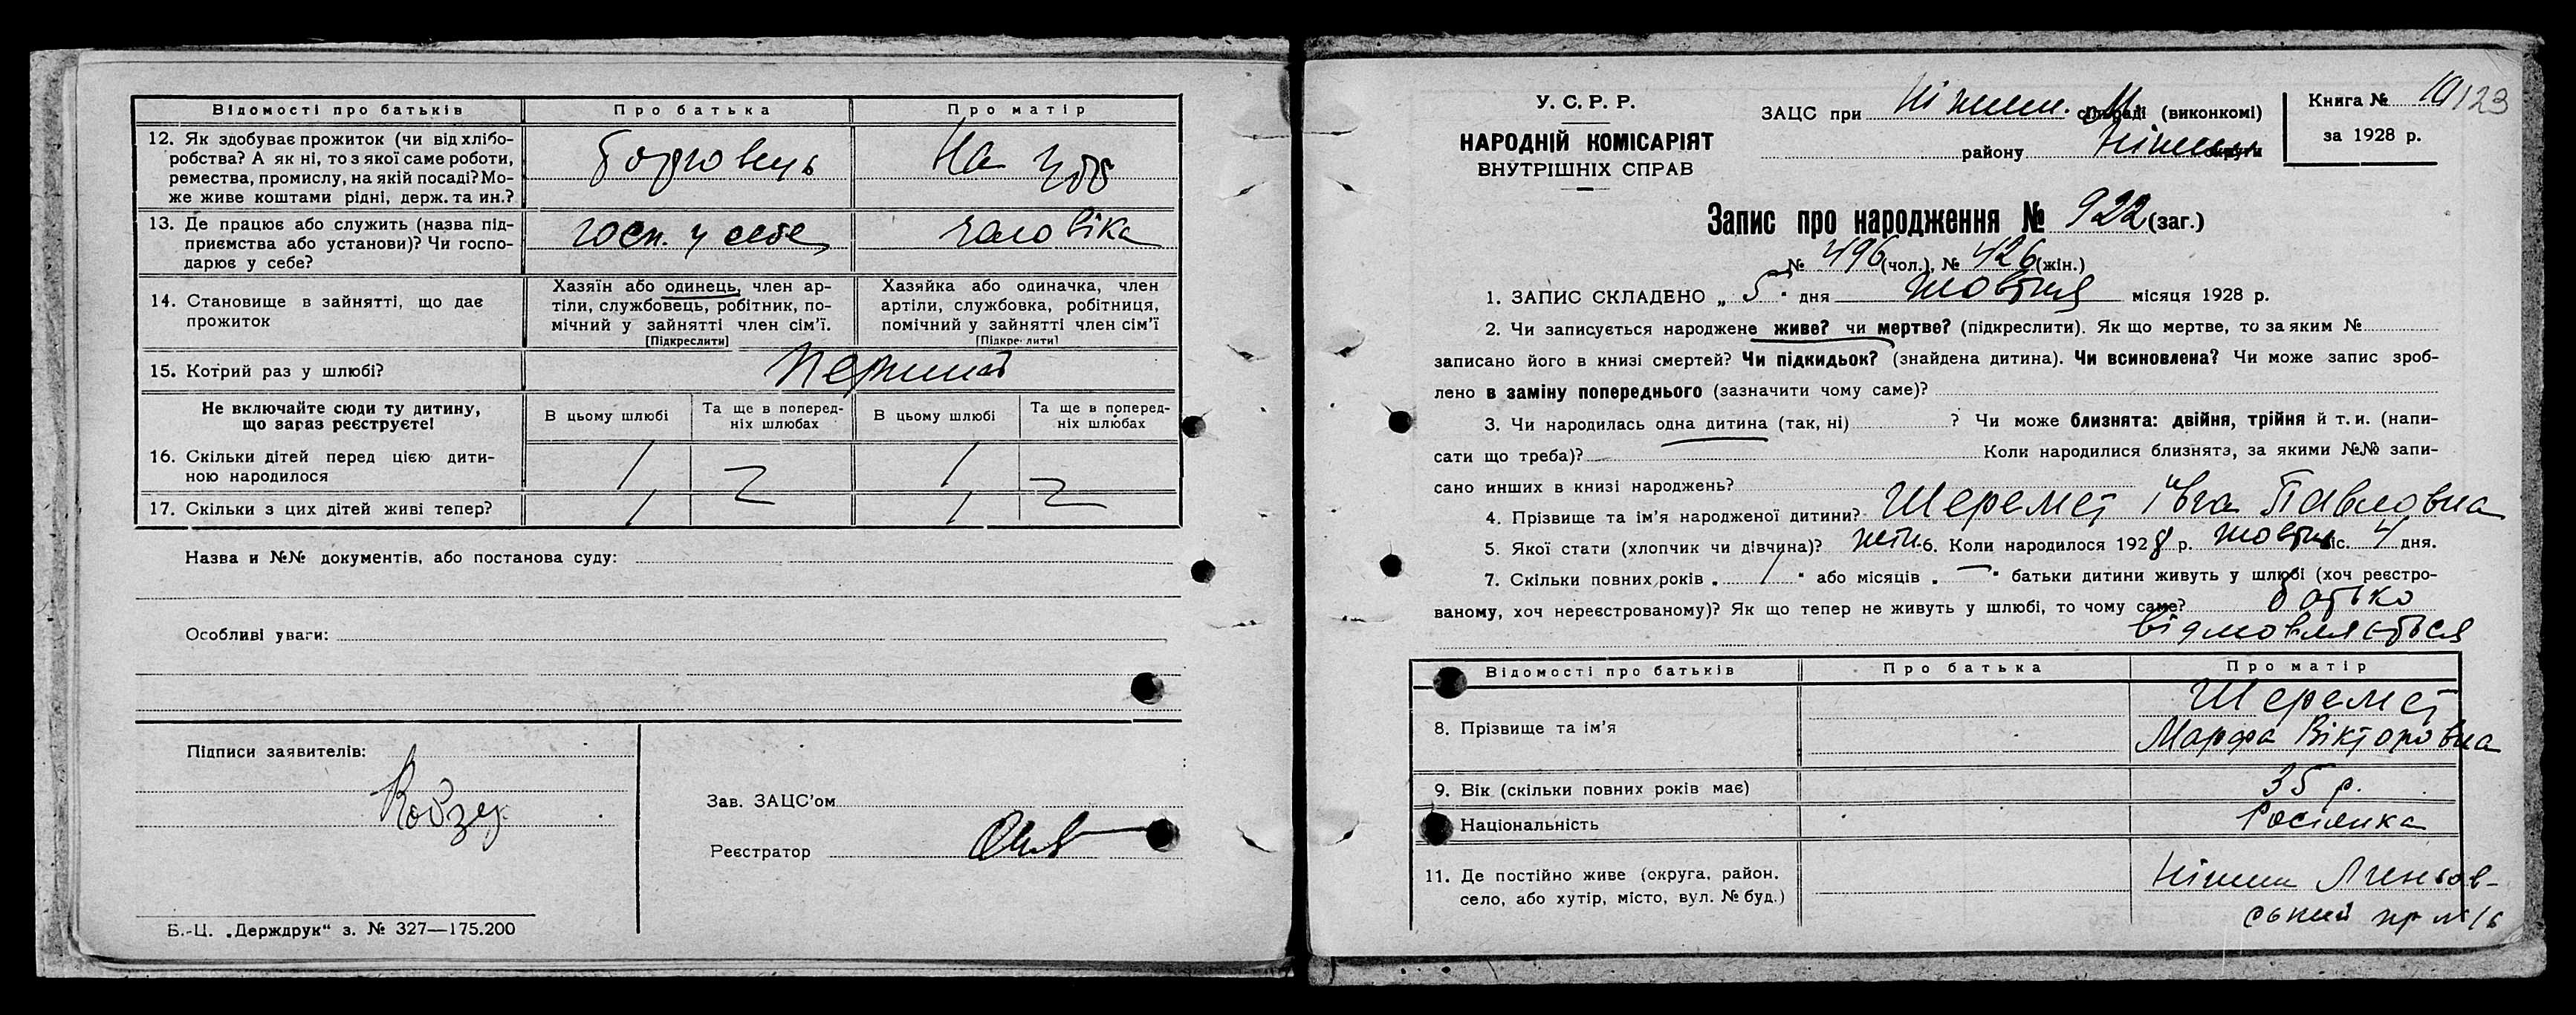 Відомості про батьків Про батька Про матір
12. Як здобуває прожиток (чи від хлібо- торговець На утр
робства? А як ні, то з якої саме роботи,
ремества, промислу, на якій посаді? Мо-
же живе коштами рідні, держ. та ин.?
13. Де працює або служить (назва під- госп. у себе чоловіка
приємства або установи)? Чи госпо-
дарює у себе?
14. Становище в зайнятті, що дає
прожиток
Хазяїн або одинець, член ар-
тіли, службовець, робітник, по-
мічний у зайнятті член сім'ї.
[Підкреслити]
Хазяйка або одиначка, член
артіли, службовка, робітниця,
помічний у зайнятті член сім'ї
[Підкре-лити]
15. Котрий раз у шлюбі? Перший
Не включайте сюди ту дитину,
що зараз реєструєте!
В цьому шлюбі Та ще в поперед-
ніх шлюбах В цьому шлюбі Та ще в поперед-
ніх шлюбах
16. Скільки дітей перед цією дити-
ною народилося 1 1
17. Скільки з цих дітей живі тепер? 1 1
Назва и №№ документів, або постанова суду:
Особливі уваги:
Підписи заявителів:
Зав. ЗАЦС'ом
Реєстратор
Б.-Ц. „Держдрук" з. № 327—175.200
У. С. Р. Р.
НАРОДНІЙ КОМІСАРІЯТ
ВНУТРІШНІХ СПРАВ
ЗАЦС при Ніжин. М сільраді (виконкомі)
району Ніжин округи
Книга № 10 123
за 1928 р.
Запис про народження № 922 (заг.)
№ 496 (чол.), № 426 (жін.)
1. ЗАПИС СКЛАДЕНО „ 5 " дня жовтня місяця 1928 р.
2. Чи записується народжене живе? чи мертве? (підкреслити). Як що мертве, то за яким №
записано його в книзі смертей? Чи підкидьок? (знайдена дитина). Чи всиновлена? Чи може запис зроб-
лено в заміну попереднього (зазначити чому саме)?
3. Чи народилась одна дитина (так, ні) ? Чи може близнята: двійня, трійня й т. и. (напи-
сати що треба)? Коли народилися близнята, за якими №№ запи-
сано инших в книзі народжень?
4. Прізвище та ім'я народженої дитини? Шеремет Івга Павловна
5. Якої стати (хлопчик чи дівчина)? жін. 6. Коли народилося 1928 р. жовтня міс. 4 дня.
7. Скільки повних років „ 1 " або місяців „ — " батьки дитини живуть у шлюбі (хоч реєстро-
ваному, хоч нереєстрованому)? Як що тепер не живуть у шлюбі, то чому саме? батько
відмовляється
Відомості про батьків Про батька Про матір
8. Прізвище та ім'я Шеремет
Марфа Вікторовна
9. Вік (скільки повних років має) 35 р.
Національність Росіянка
11. Де постійно живе (округа, район, Ніжин
село, або хутір, місто, вул. № буд.) ський пр